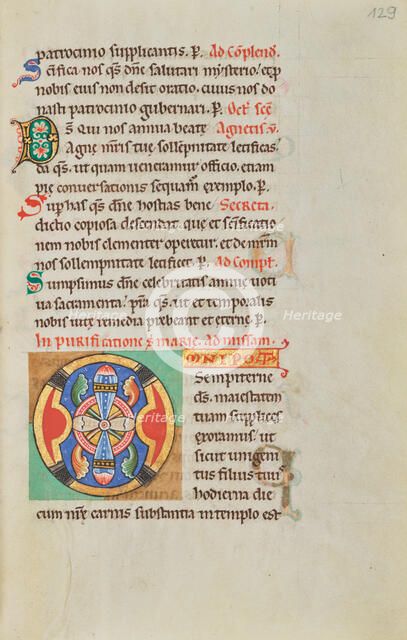 129
patrocinio supplicantis. p. Ad Cōplend.
Sc̄ifica nos q̄s dn̄e salutari mysterio. et p̄
nobis eius non desit oratio. cuius nos do
nasti patrocinio gubernari. p.
Ds̄ qui nos annua beatę Agnetis v̄.
Agne mr̄is tuę sollēpnitate lętificas.
da q̄s. ut quam veneramur officio. etiam
pię conversationis sequam̄ exemplo. p.
Sup has q̄s dn̄e hostias bene Secreta.
dictio copiosa descendat. quę et sc̄ificatio
nem nobis clementer operetur. et de mr̄m
nos sollempnitate lętificet. p. Ad Compl.
Sumpsimus dn̄e celebritatis annuę voti
va sacramenta. p̄ta q̄s. ut et temporalis
nobis vitę remedia prębeant et ęternę. p.
In purificatione s. marię. ad missam.
OMNIPOT
Sempiterne
ds̄. maiestatem
tuam supplices
exoramus. ut
sicut unigeni
tus filius tuus
hodierna die
cum nr̄ę carnis substantia in templo est
Heritage Images
Heritage Images
Heritage Images